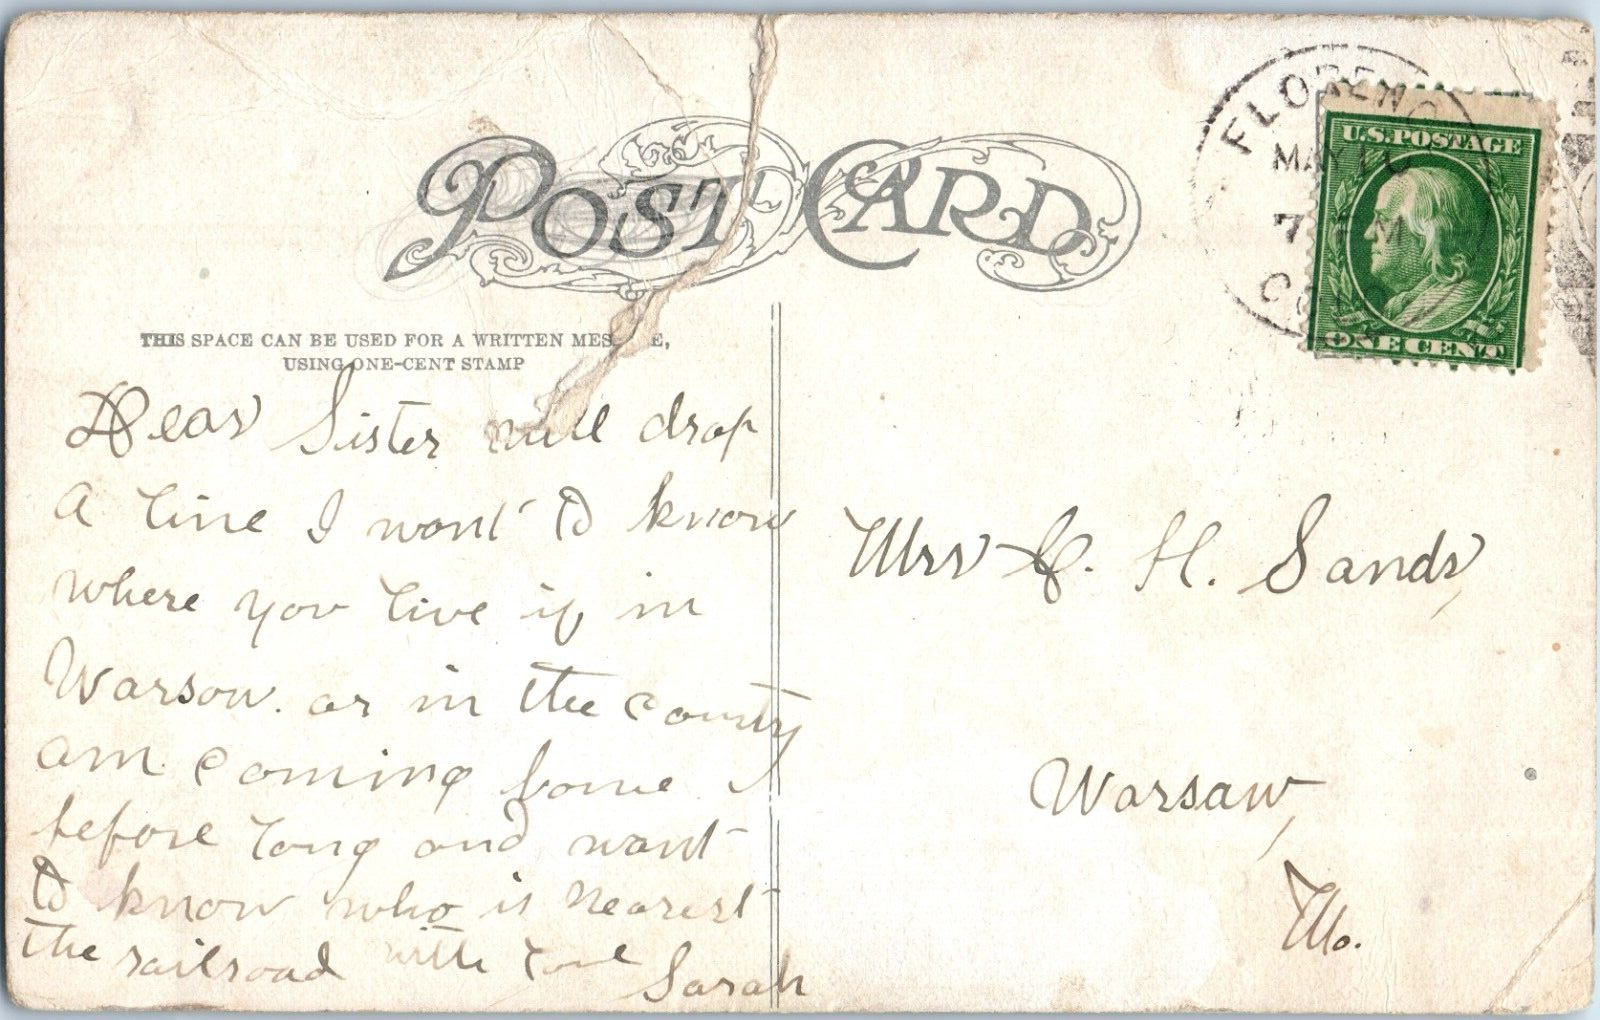 POST CARD
FLORENC
MAY 10
7 M
COLO
U.S. POSTAGE
ONE CENT
THIS SPACE CAN BE USED FOR A WRITTEN MES E,
USING ONE-CENT STAMP
Dear Sister will drop
a line I want to know
where you live if in
Warsow. or in the county
am coming home
before long and want
to know who is nearest
the railroad with love Sarah
Mrs C. H. Sands,
Warsaw,
Mo.